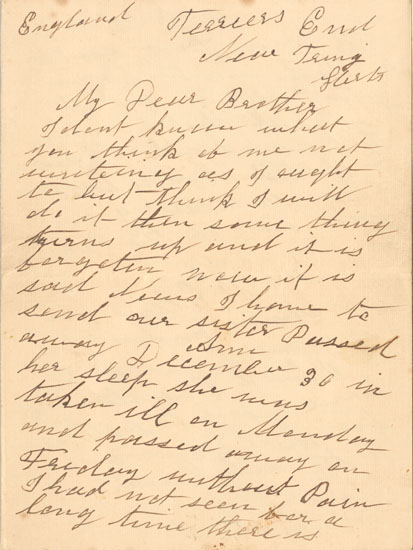 England Terriers End
New Tring
Herts
My Dear Brother
I dont know what
you think of me not
writeing as I ought
to but think I will
do it then some thing
turns up and it is
forgoten now it is
sad News I have to
send our sister Passed
Ann
away December 30 in
her sleep she was
taken ill on Monday
and passed away on
Friday without Pain
I had not seen her a
long time there is